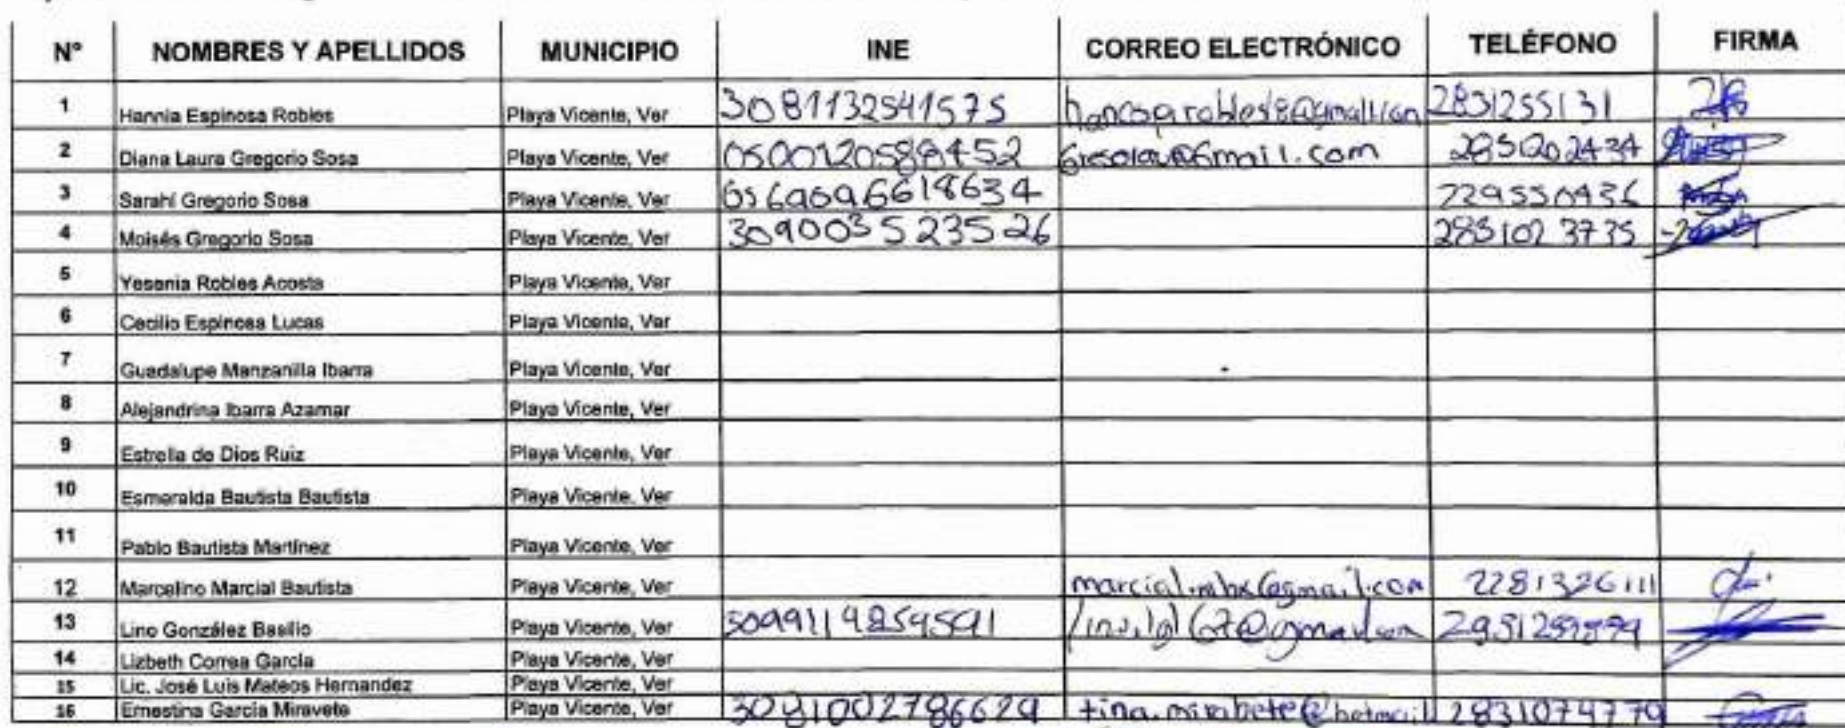 N° NOMBRES Y APELLIDOS MUNICIPIO INE CORREO ELECTRÓNICO TELÉFONO FIRMA
1 Hannia Espinosa Robles Playa Vicente, Ver 3081132541575 2831255131
2 Diana Laura Gregorio Sosa Playa Vicente, Ver
3 Sarahí Gregorio Sosa Playa Vicente, Ver
4 Moisés Gregorio Sosa Playa Vicente, Ver 3090035523526 2831023735
5 Yesenia Robles Acosta Playa Vicente, Ver
6 Cecilio Espinosa Lucas Playa Vicente, Ver
7 Guadalupe Manzanilla Ibarra Playa Vicente, Ver
8 Alejandrina Ibarra Azamar Playa Vicente, Ver
9 Estrella de Dios Ruiz Playa Vicente, Ver
10 Esmeralda Bautista Bautista Playa Vicente, Ver
11 Pablo Bautista Martínez Playa Vicente, Ver
12 Marcelino Marcial Bautista Playa Vicente, Ver 2281326111
13 Lino González Basilio Playa Vicente, Ver
14 Lizbeth Correa García Playa Vicente, Ver
15 Lic. José Luis Mateos Hernandez Playa Vicente, Ver
16 Ernestina García Miravete Playa Vicente, Ver 3081002786629 tina.mirabete@hotmail 2831074779